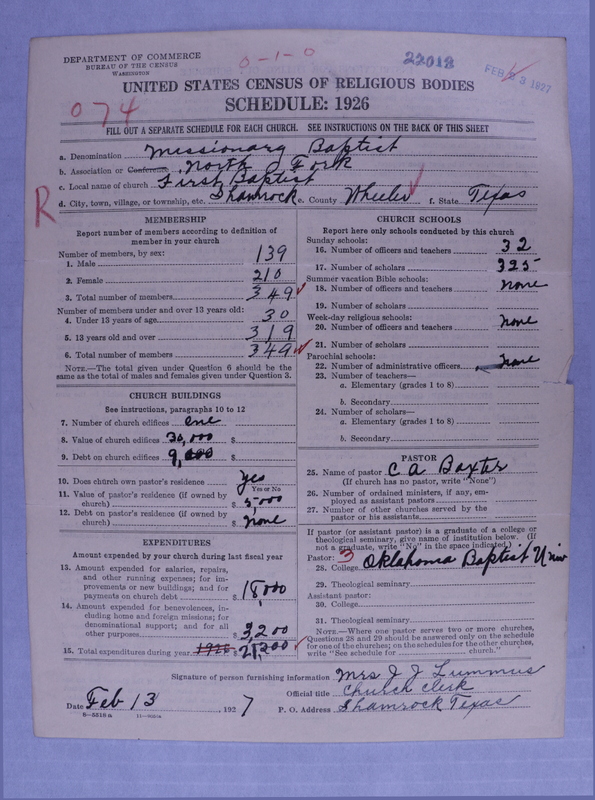 DEPARTMENT OF COMMERCE
BUREAU OF THE CENSUS
WASHINGTON
0-1-0
22012
FEB 23 1927
UNITED STATES CENSUS OF RELIGIOUS BODIES
074
SCHEDULE: 1926
FILL OUT A SEPARATE SCHEDULE FOR EACH CHURCH. SEE INSTRUCTIONS ON THE BACK OF THIS SHEET
a. Denomination Missionary Baptist
b. Association or Conference North Fork
c. Local name of church First Baptist
R
d. City, town, village, or township, etc. Shamrock e. County Wheeler f. State Texas
MEMBERSHIP
Report number of members according to definition of
member in your church
Number of members, by sex:
1. Male 139
2. Female 210
3. Total number of members 349
Number of members under and over 13 years old:
4. Under 13 years of age 30
5. 13 years old and over 319
6. Total number of members 349
NOTE.—The total given under Question 6 should be the
same as the total of males and females given under Question 3.
CHURCH BUILDINGS
See instructions, paragraphs 10 to 12
7. Number of church edifices one
8. Value of church edifices 30,000 $
9. Debt on church edifices 9,000 $
10. Does church own pastor's residence yes
Yes or No
11. Value of pastor's residence (if owned by
church) $ 5,000
12. Debt on pastor's residence (if owned by
church) $ none
EXPENDITURES
Amount expended by your church during last fiscal year
13. Amount expended for salaries, repairs,
and other running expenses; for im-
provements or new buildings; and for
payments on church debt $ 18,000
14. Amount expended for benevolences, in-
cluding home and foreign missions; for
denominational support; and for all
other purposes $ 3,200
15. Total expenditures during year 1926 $ 21,200
CHURCH SCHOOLS
Report here only schools conducted by this church
Sunday schools:
16. Number of officers and teachers 32
17. Number of scholars 325
Summer vacation Bible schools:
18. Number of officers and teachers none
19. Number of scholars
Week-day religious schools:
20. Number of officers and teachers none
21. Number of scholars
Parochial schools:
22. Number of administrative officers none
23. Number of teachers—
a. Elementary (grades 1 to 8)
b. Secondary
24. Number of scholars—
a. Elementary (grades 1 to 8)
b. Secondary
PASTOR
25. Name of pastor C A Baxter
(If church has no pastor, write "None")
26. Number of ordained ministers, if any, em-
ployed as assistant pastors
27. Number of other churches served by the
pastor or his assistants
If pastor (or assistant pastor) is a graduate of a college or
theological seminary, give name of institution below. (If
not a graduate, write "No" in the space indicated.)
Pastor: 3
28. College Oklahoma Baptist Univ
29. Theological seminary
Assistant pastor:
30. College
31. Theological seminary
NOTE.—Where one pastor serves two or more churches,
Questions 28 and 29 should be answered only on the schedule
for one of the churches; on the schedules for the other churches,
write "See schedule for church."
Signature of person furnishing information Mrs J J Lummus
Official title Church clerk
Date Feb 13, 1927 P. O. Address Shamrock Texas
8-5518 a